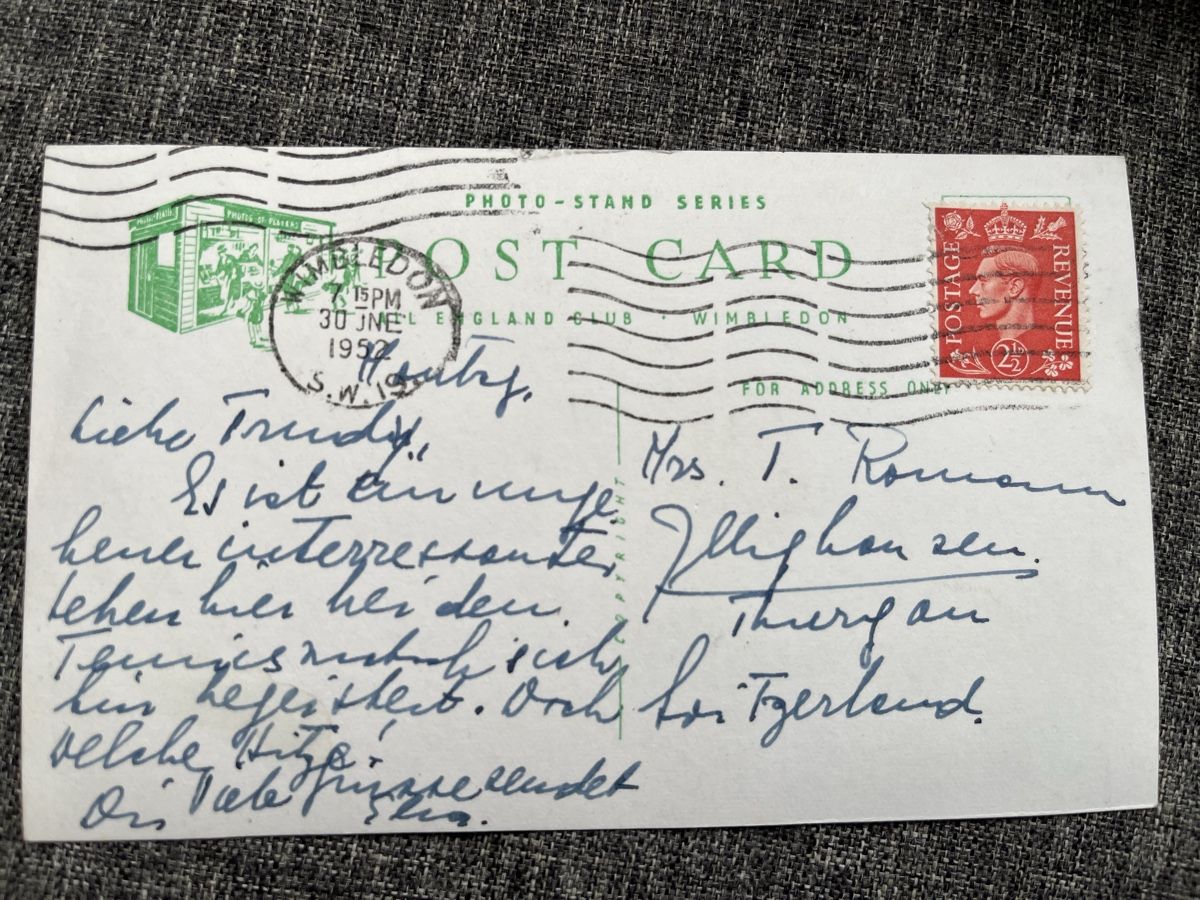 PHOTO-STAND SERIES
PHOTOS OF PLAYERS
POST CARD
ALL ENGLAND CLUB · WIMBLEDON
WIMBLEDON
7 15 PM
30 JNE
1952
S.W.19
POSTAGE REVENUE
2½D
FOR ADDRESS ONLY
COPYRIGHT
Montag.
Liebe Trudy,
Es ist ein unge
heuer interressantes
leben hier bei den
Tennis ich
bin begeistert. Doch
welche Hitze!
Dir liebe grüsse sendet
Mrs. T. Romann
Illighausen.
Thurgau
Switzerland.